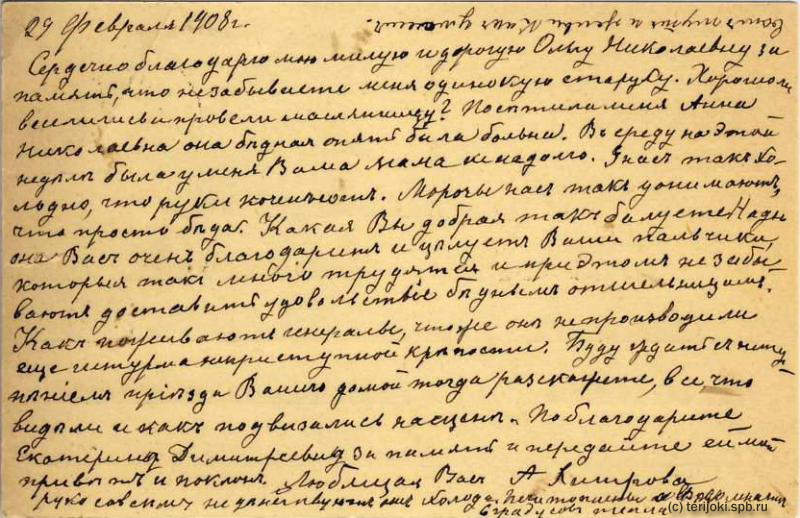 29 Февраля 1908 г.
Сердечно благодарю мою милую и дорогую Ольгу Николаевну за
память, что незабываете меня одинокую старуху. Хорошоли
веселились и провели масляницу? Посѣтила меня Анна
Николаевна она бѣдная опять была больна. Въ среду на этой
недѣлѣ была у меня Ваша мама не надолго. У насъ такъ хо-
лодно, что руки коченѣютъ. Морозы насъ такъ донимаютъ,
что просто бѣда. Какая Вы добрая такъ балуете Надю
она Васъ очень благодаритъ и цѣлуетъ Ваши пальчики,
которыя такъ много трудятся и при этомъ не забы-
ваютъ доставить удовольствіе бѣднымъ отшельницамъ.
Какъ поживаютъ генералы, что же онѣ не производили
еще штурма неприступной крѣпости. Буду ждать съ нетер-
пѣніемъ пріѣзда Вашего домой тогда разскажете, все, что
видѣли и какъ подвизались на сценѣ. Поблагодарите
Екатерину Димитріевну за память и передайте ей мой
привѣтъ и поклонъ. Любящая Васъ А Хитрова
холода.
градусовъ тепла
(c) terijoki.spb.ru